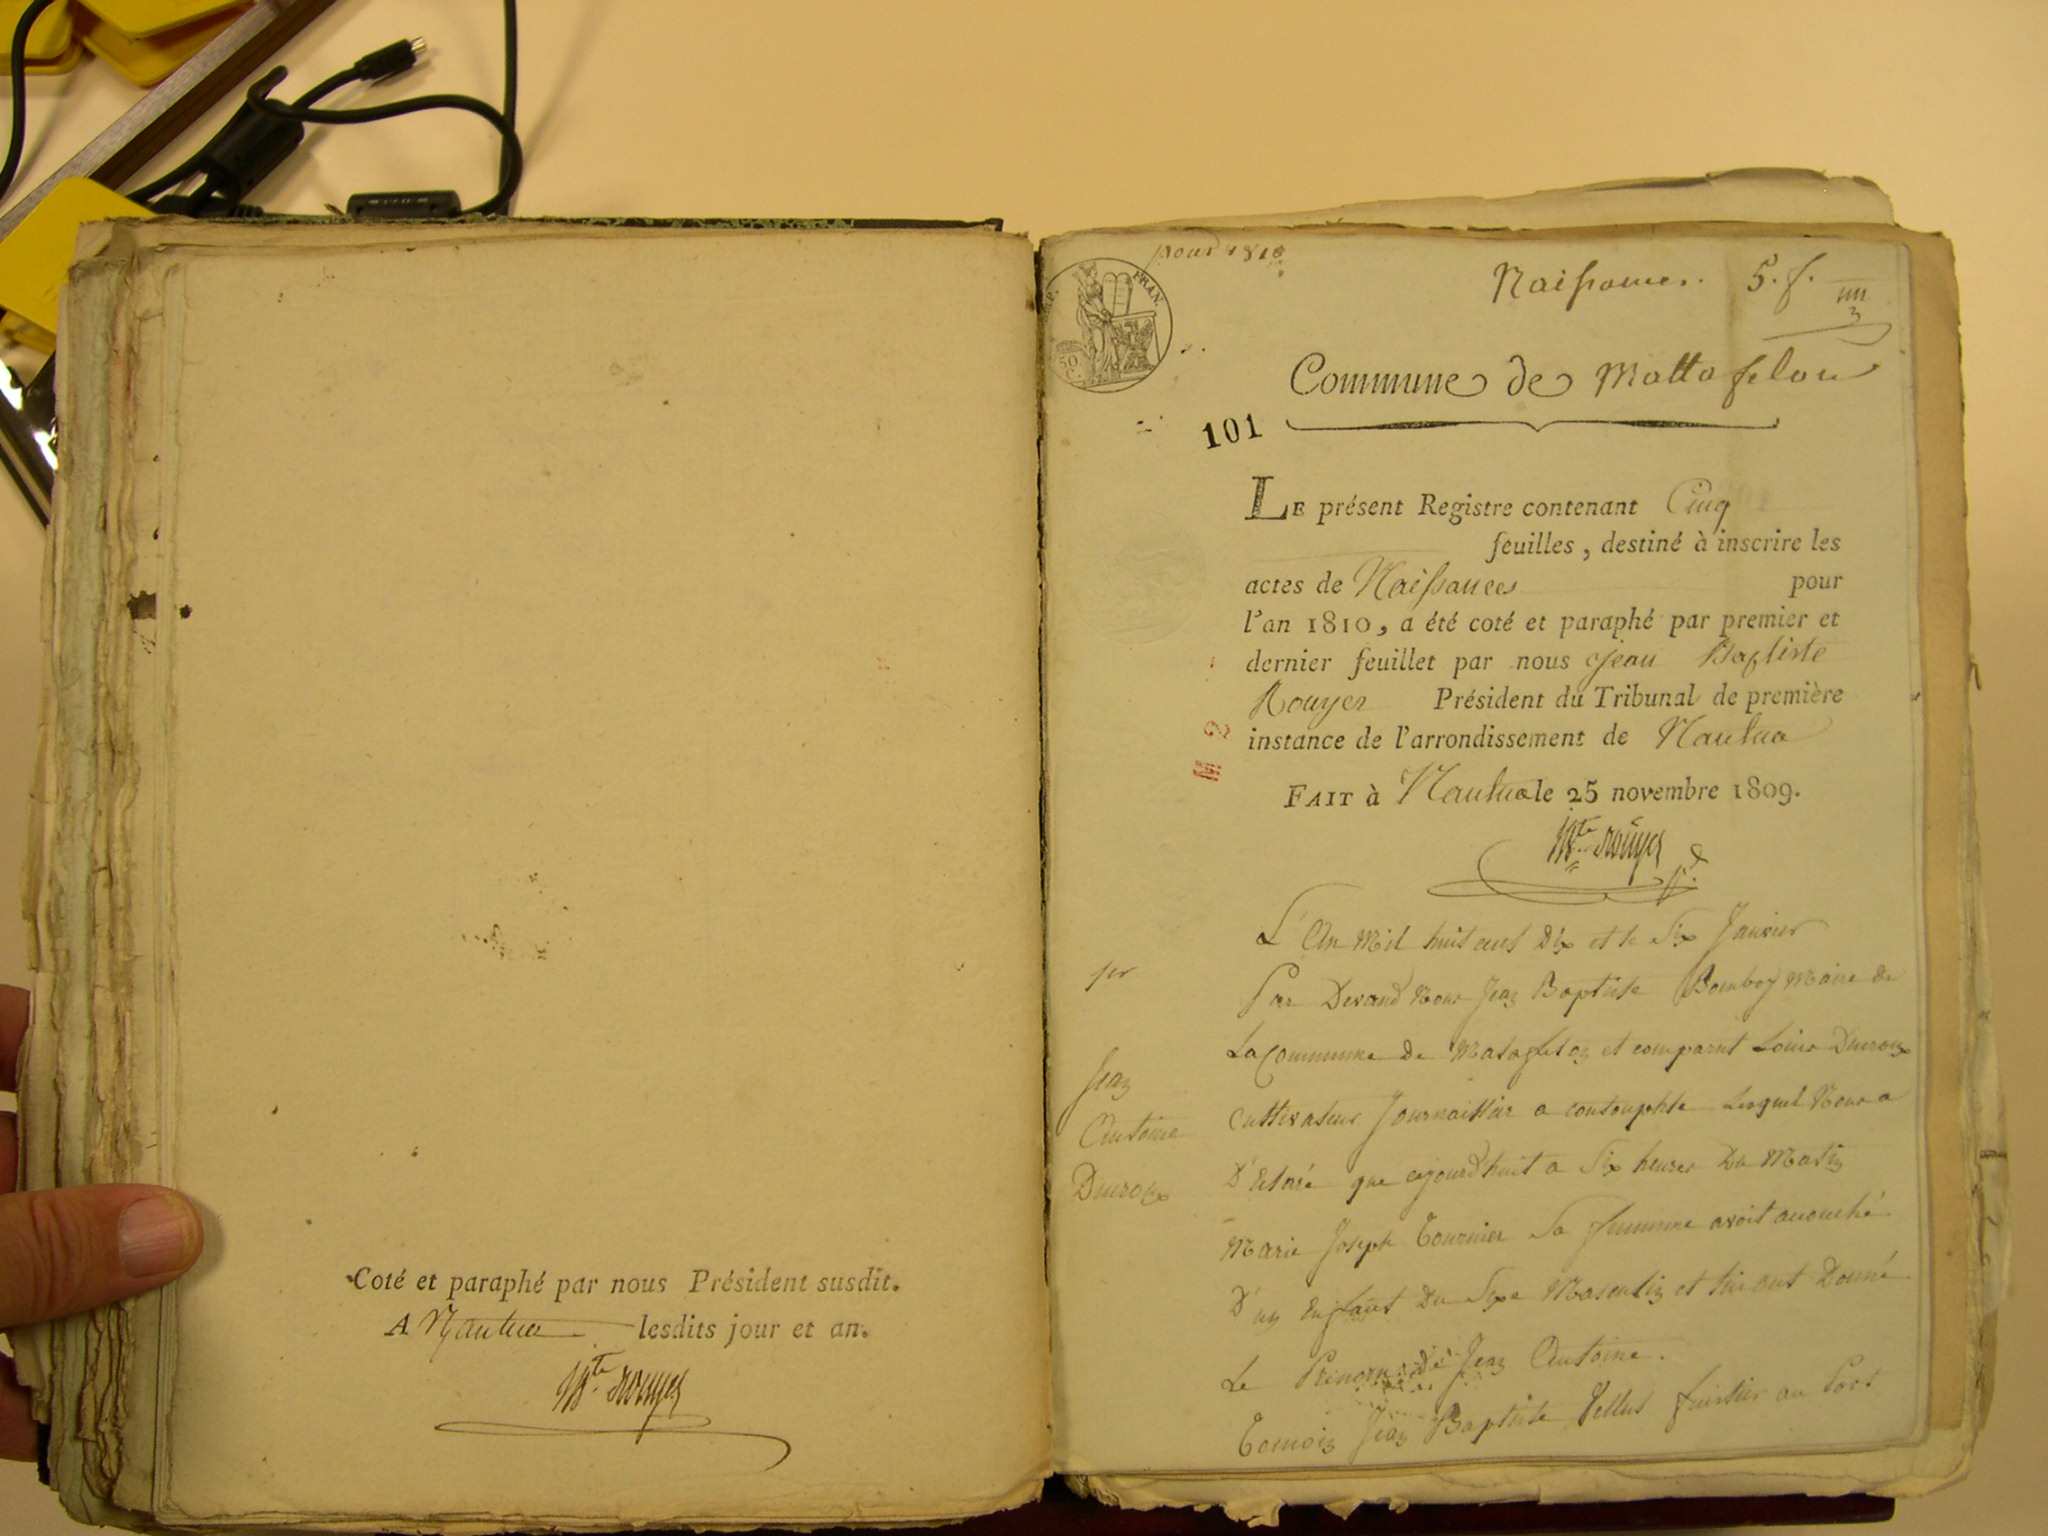 Coté et paraphé par nous Président susdit.
A Nantua lesdits jour et an.
Bte. Rouyer
pour 1810
REP. FRAN.
50
C.
Naissances. 5. f.
Commune de Mattafelon
101
LE présent Registre contenant Cinq
feuilles, destiné à inscrire les
actes de Naissances pour
l'an 1810, a été coté et paraphé par premier et
dernier feuillet par nous Jean Baptiste
Rouyer Président du Tribunal de première
instance de l'arrondissement de Nantua
FAIT à Nantua le 25 novembre 1809.
Bte. Rouyer
L'An Mil huit cent Dix et le Six Janvier
1er
Par Devand Nous Jean Baptiste Maire de
La Commune de Matafelon et comparut Louis Duroux
Jean
Cultivateur a Lequel Nous a
Antoine
Déclaré que à Six heures Du Matin
Duroux
Marie Joseph Tournier Sa femme avoit acouché
D'un Enfant Du Sexe Masculin et lui ont Donné
Le Prenom de Jean Antoine.
Temoin Jean Baptiste au Port